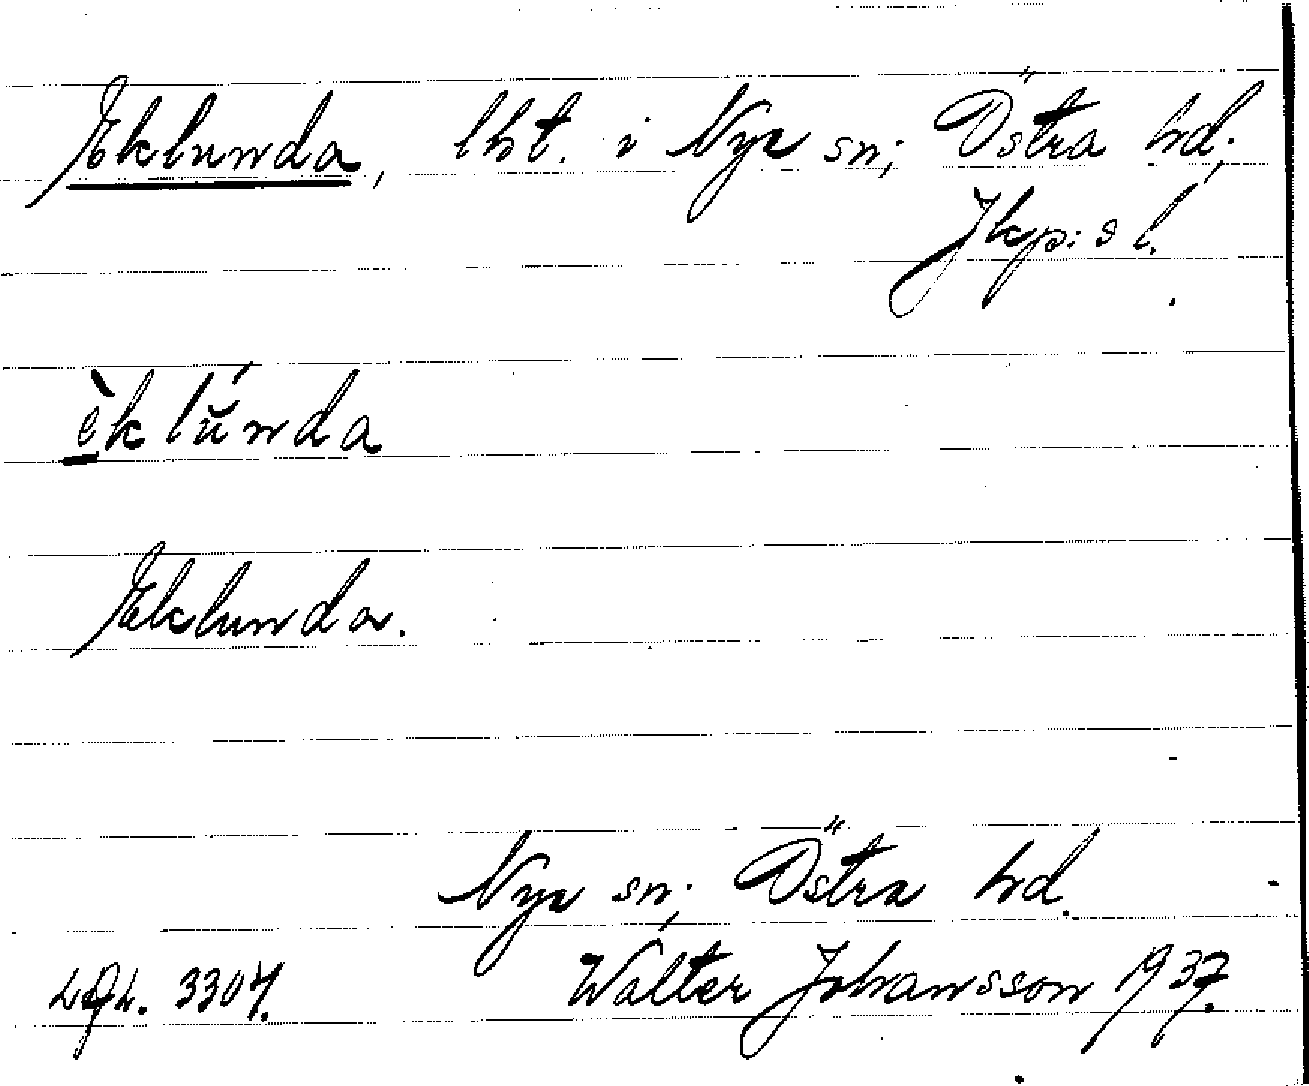 Eklunda, lht. i Nye sn; Östra hd;
Jkp:s l.
èk lŭ́nda
Eklunda.
Nye sn; Östra hd.
Walter Johansson 1937.